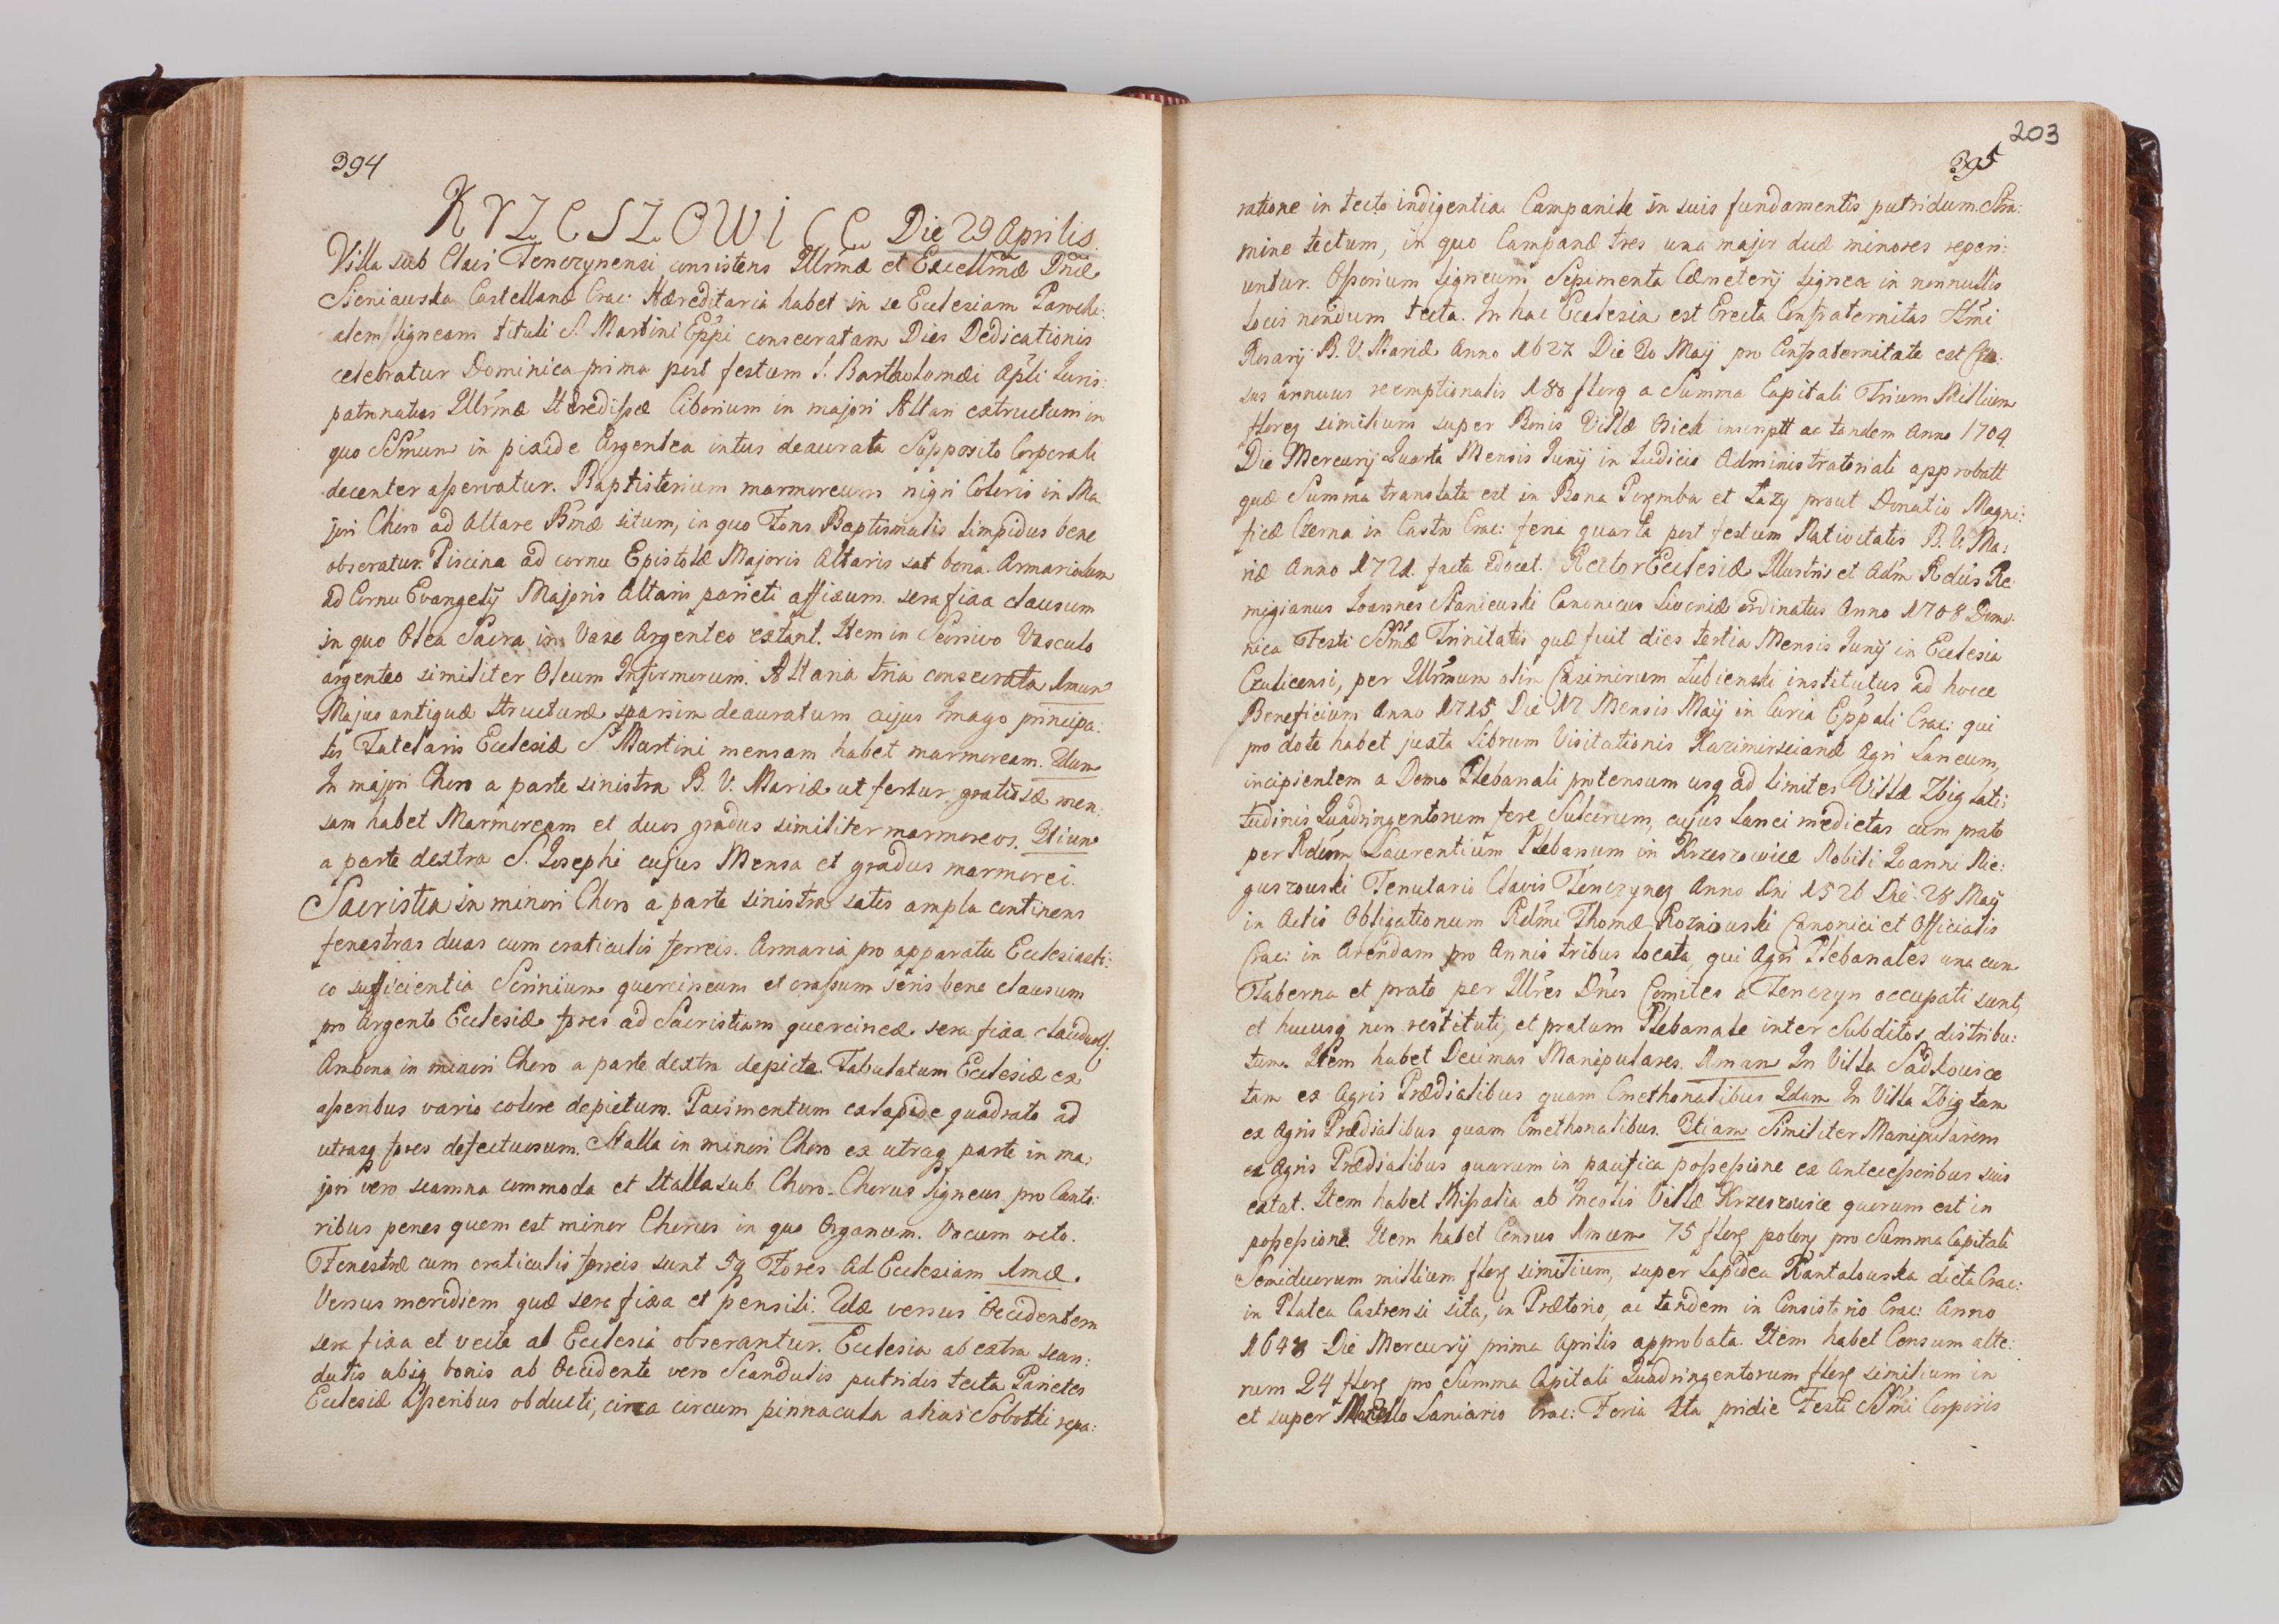 394
KRZESZOWICE Die 29 Aprilis.
Villa sub Clavi Tenczynensi consistens Illrmæ et Excellmæ Dnæ
Sieniawska Castellanæ Crac: Hæreditaria habet in se Ecclesiam Parochi:
alem ligneam tituli S. Martini Eppi consecratam Dies Dedicationis
celebratur Dominica prima post festum S. Bartholomæi Apli Juris:
patronatus Illrmæ Hæredissæ Ciborium in majori Altari extructum in
quo SSmum in pixide Argentea intus deaurata Supposito Corporali
decenter asservatur. Baptisterium marmoreum nigri Coloris in Ma
jori Choro ad Altare Bmæ situm, in quo Fons Baptismalis limpidus bene
obseratur. Piscina ad cornu Epistolæ Majoris Altaris sat bona. Armariolum
ad Cornu Evangelij Majoris Altaris parieti affixum sera fixa clausum
in quo Olea Sacra in Vase Argenteo extant. Item in Vasculo
argenteo similiter Oleum Infirmorum. Altaria tria consecrata 1mum
Majus antiquæ structuræ sparsim deauratum cujus Imago principa:
lis Tutelaris Ecclesiæ S Martini mensam habet marmoream. 2dum
In majori Choro a parte sinistra B. V. Mariæ ut fertur gratiosæ men:
sam habet Marmoream et duos gradus similiter marmoreos. 3tium
a parte dextra S. Josephi cujus Mensa et gradus marmorei.
Sacristia in minori Choro a parte sinistra satis ampla continens
fenestras duas cum craticulis ferreis. Armaria pro apparatu Ecclesiasti:
co sufficientia Scrinium quercineum et crassum seris bene clausum
pro Argento Ecclesiæ fores ad Sacristiam quercineæ sera fixa
Ambona in minori Choro a parte dextra depicta Tabulatum Ecclesiæ ex
asseribus vario colore depictum. Pavimentum ex lapide quadrato ad
utrasq fores defectuosum. Stalla in minori Choro ex utraq parte in ma:
jori vero scamna commoda et Stalla sub Choro. Chorus ligneus pro Canto:
ribus penes quem est minor Chorus in quo Organum. Vocum octo.
Fenestræ cum craticulis ferreis sunt Fores Ad Ecclesiam 1mæ.
Versus meridiem quæ sera fixa et pensili. 2dæ versus Occidentem
sera fixa et vecte ab Ecclesia obserantur. Ecclesia ab extra scan:
dulis ubiq bonis ab Occidente vero Scandulis putridis tecta Parietes
Ecclesiæ Asseribus obducti, circa circum pinnacula alias Sobotki repa:
203
395
ratione in tecto indigentia Campanile in suis fundamentis putridum. Stra:
mine tectum, in quo Campanæ tres una major duæ minores reperi:
untur. Ossorium ligneum Sepimenta Cæmeterij lignea in nonnullis
locis nondum tecta. In hac Ecclesia est Erecta Confraternitas SSmi
Rosarij B. V. Mariæ Anno 1627 Die 20 Maij pro Confraternitate est Cen:
sus annuus reemptionalis 180 florq a Summa Capitali Trium Millium
florq similium super Bonis Villæ inscriptt ac tandem Anno 1704
Die Mercurij Quarta Mensis Junij in Judicio Administratoriali approbatt
quæ Summa translata est in Bona Poremba et Łazy prout Donatio Magni:
ficæ Czerna in Castro Crac: feria quarta post festum Nativitatis B. V. Ma:
riæ Anno 1721. facta edocet. Rector Ecclesiæ Illustris et Adm Rdus Re:
migianus Joannes Canonicus Livoniæ ordinatus Anno 1708 Domi:
nica Festi SSmæ Trinitatis quæ fuit dies tertia Mensis Junij in Ecclesia
per Illrmum olim Casimirum Łubienski institutus ad hocce
Beneficium Anno 1715 Die 17 Mensis Maij in Curia Eppali Crac: qui
pro dote habet juxta Librum Visitationis Kazimirscianæ Agri Laneum,
incipientem a Domo Plebanali protensum usq ad limites Villæ Zbig lati:
tudinis Quadringentorum fere Sulcorum, cujus Lanei medietas cum prato
per Rdum Laurentium Plebanum in Krzeszowice Nobili Joanni Nie:
guszowski Tenutario Clavis Tenczynq Anno Dni 1526 Die 28 Maij
in Actis Obligationum Rdmi Thomæ Rozniowski Canonici et Officialis
Crac: in Arendam pro Annis tribus locata, qui Agri Plebanales una cum
Taberna et prato per Illres Dnos Comites a Tenczyn occupati sunt,
et hucusq non restituti, et pratum Plebanale inter Subditos distribu:
tum. Item habet Decimas Manipulares. 1mam In Villa
tam ex Agris Prædialibus quam Cmethonalibus 2dam In Villa Zbig tam
ex Agris Prædialibus quam Cmethonalibus. 3tiam Similiter Manipularem
ex Agris Prædialibus quarum in pacifica possessione ex Antecessoribus suis
extat. Item habet Missalia ab Incolis Villæ Krzeszowice quorum est in
possessione. Item habet Census 1mum 75 florq polonq pro Summa Capitali
Semiduorum millium florq similium, super Lapidea dicta Crac:
in Platea Castrensi sita, in Prætorio, ac tandem in Consistorio Crac: Anno
1648 Die Mercurij prima Aprilis approbata. Item habet Censum alte:
rum 24 florq pro Summa Capitali Quadringentorum florq similium in
et super Macello Laniario Crac: Feria 4ta pridie Festi SSmi Corporis